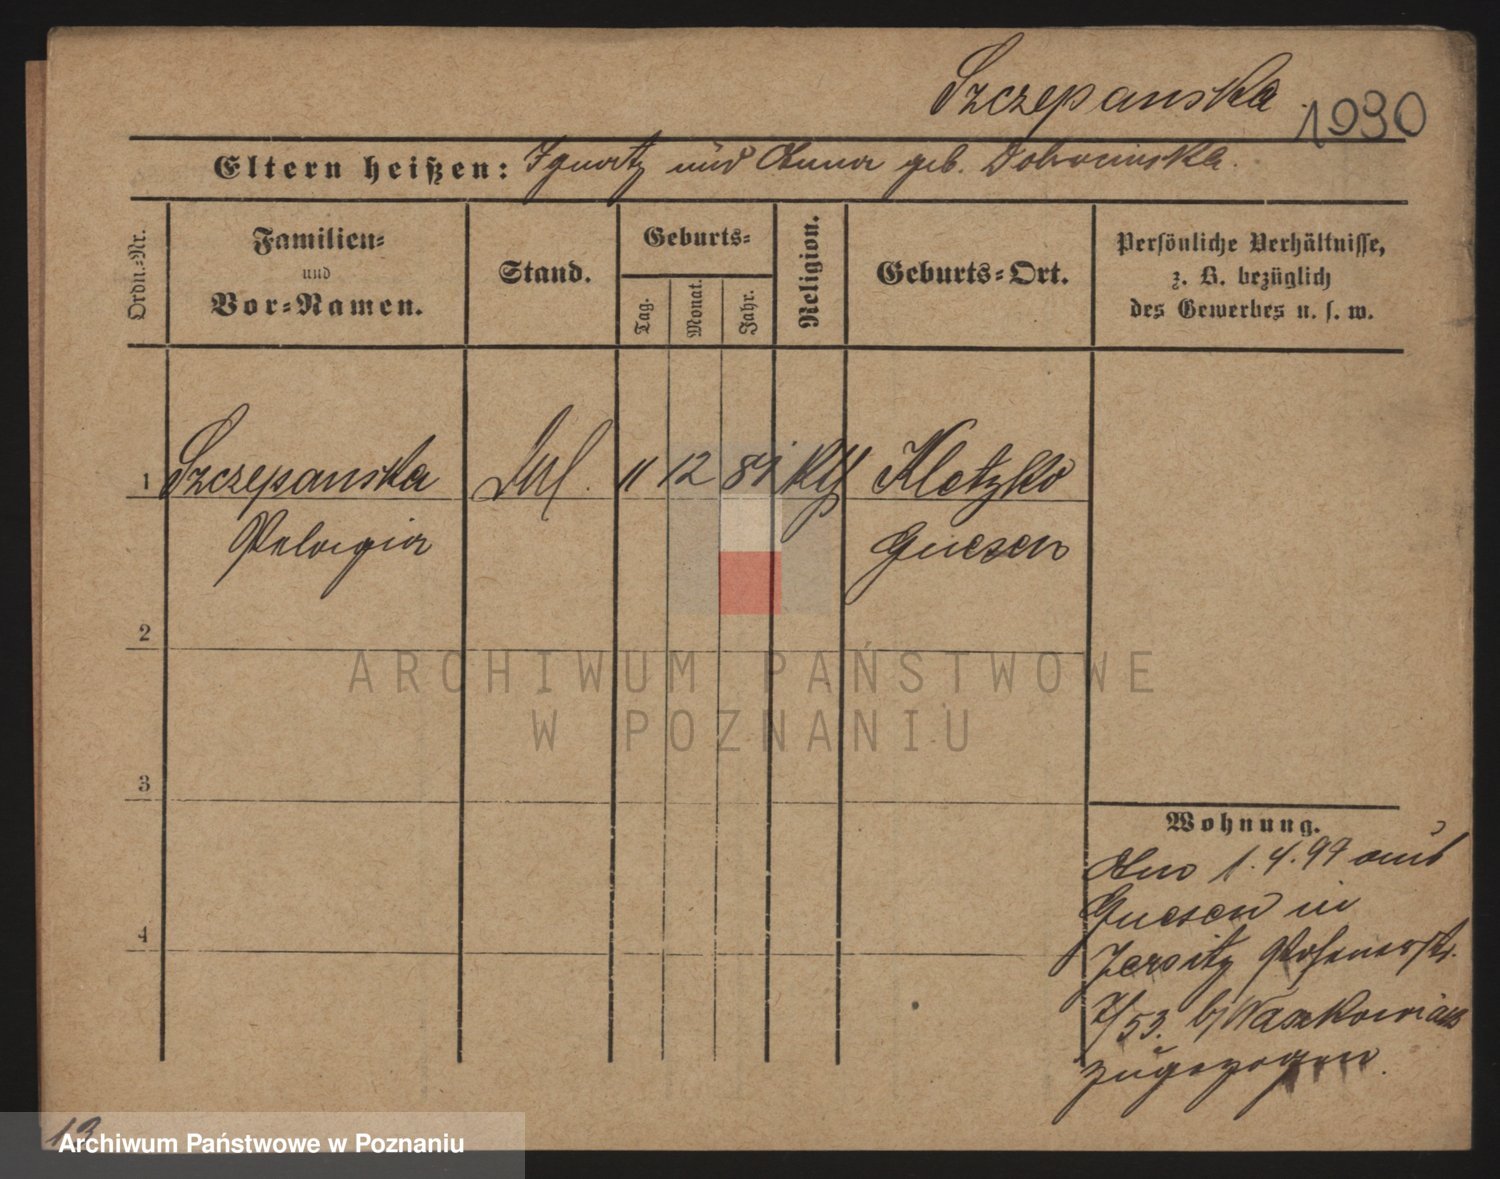 Szczepanska
1930
Eltern heißen: Ignatz und Anna geb. Dobrocinska.
Ordn.-Nr.
Familien-
und
Vor-Namen.
Stand.
Geburts-
Tag.
Monat.
Jahr.
Religion.
Geburts-Ort.
Persönliche Verhältnisse,
z. B. bezüglich
des Gewerbes u. s. w.
1 Szczepanska 11 12 81 Kth Kletzko
Pelagia Gnesen
2
ARCHIWUM PAŃSTWOWE
W POZNANIU
3
Wohnung.
Am 1.4.97 aus
Gnesen in
4
Jersitz Posenerstr.
7/53. b/ Waszkowiak
zugezogen.
13
Archiwum Państwowe w Poznaniu